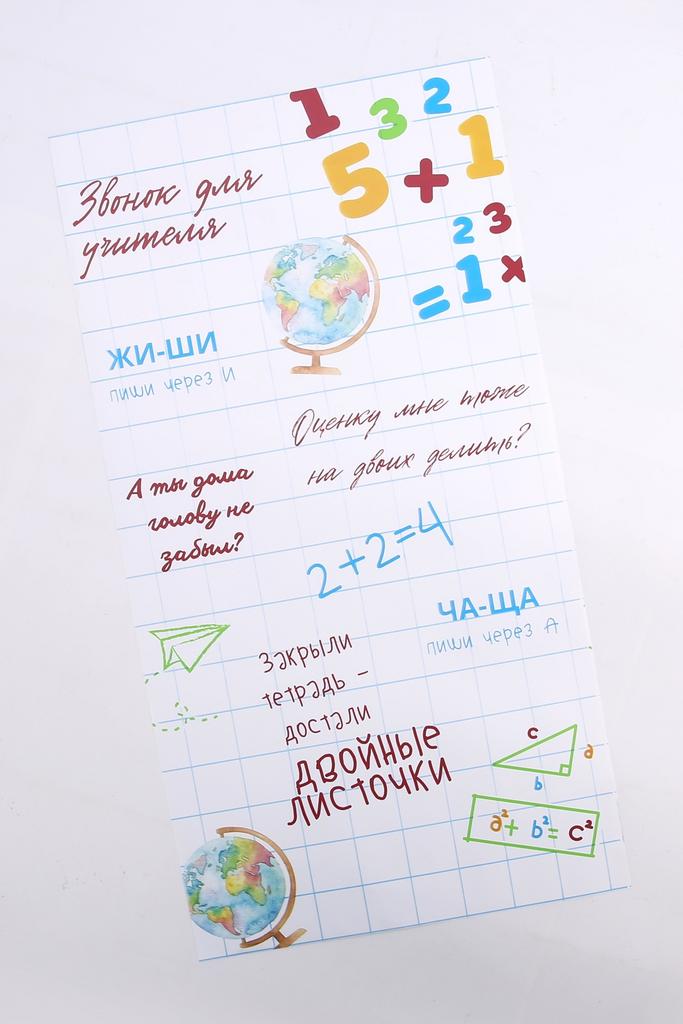 1 3 2
5 + 1
2 3
= 1 ×
Звонок для
учителя
ЖИ-ШИ
пиши через И
Оценку мне тоже
на двоих делить?
А ты дома
голову не
забыл?
2+2=4
ЧА-ЩА
пиши через А
Закрыли
тетрадь –
достали
ДВОЙНЫЕ
ЛИСТОЧКИ
c
a
b
a²+ b²= c²